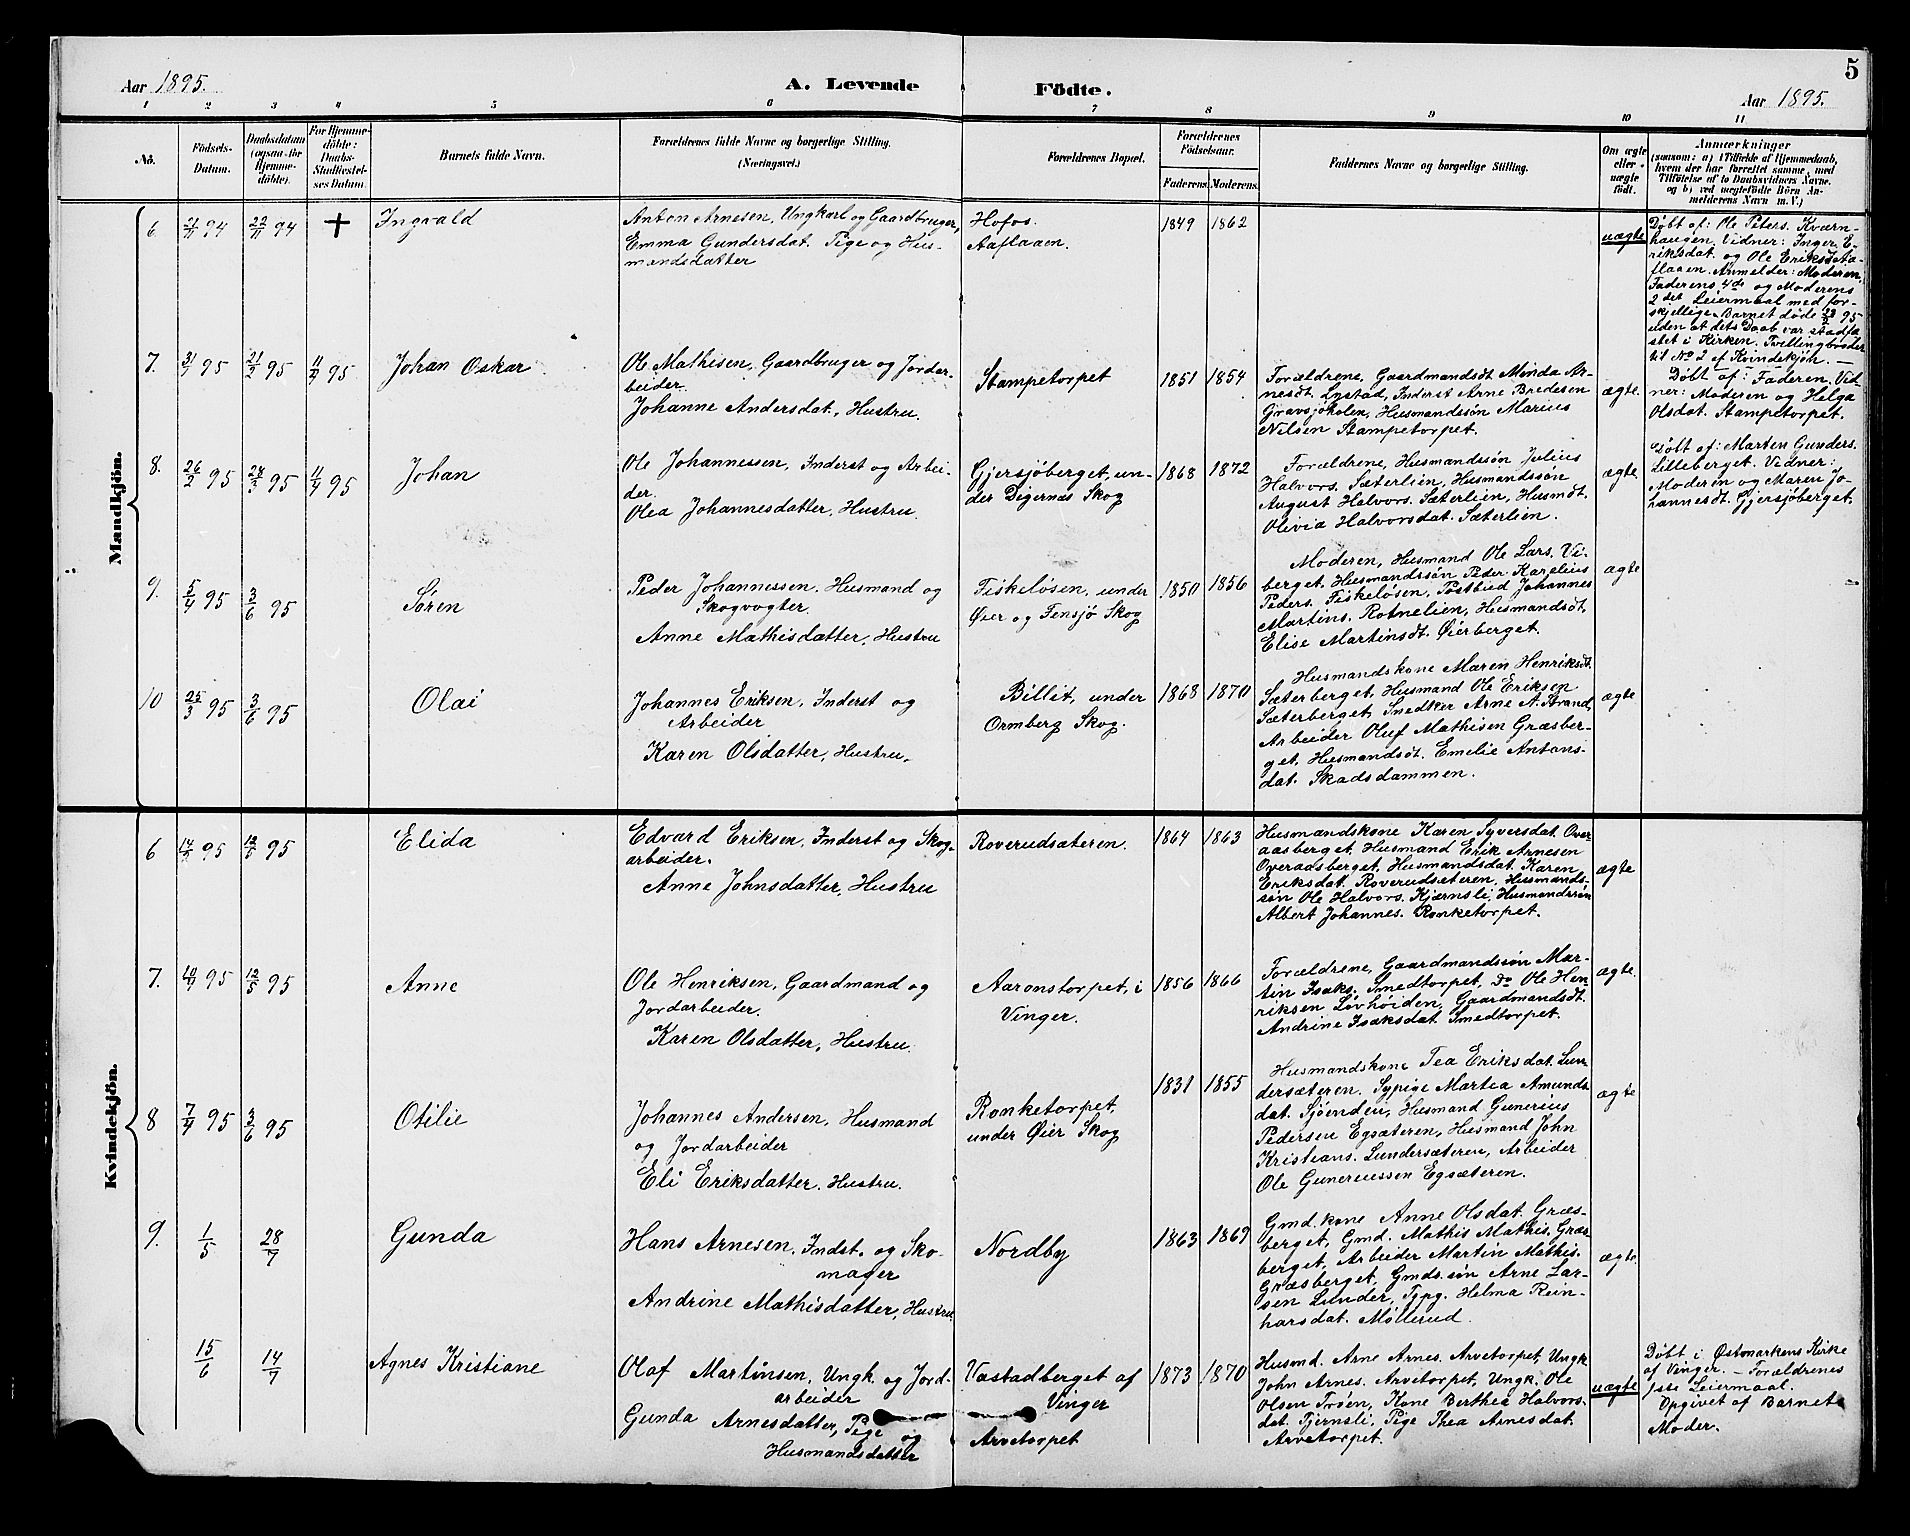 Aar 1895.
A. Levende Födte.
Aar 1895.
5
1 2 3 4 5 6 7 8 9 10 11
No.
Födsels-
Datum.
Daabsdatum
(ogsaa for
Hjemme-
döbte).
For Hjemme-
döbte:
Daabs-
Stadfæstel-
ses Datum.
Barnets fulde Navn.
Forældrenes fulde Navne og borgerlige Stilling.
(Næringsvei.)
Forældrenes Bopæl.
Forældrenes
Födselsaar.
Faderens. Moderens.
Faddernes Navne og borgerlige Stilling.
Om ægte
eller
uægte
födt.
Anmærkninger
(saasom: a) i Tilfælde af Hjemmedaab,
hvem der har forrettet samme, med
Tilföielse af to Daabsvidners Navne,
og b) ved uægtefödte Börn An-
melderens Navn m. V.)
Mandkjön.
6. 94 22/11 94 + Ingvald
Anton Arnesen, Ungkarl og Gaardbruger,
Emma Gundersdat. Pige og Hus-
mandsdatter
Hofos.
Aaflaaen.
1849 1862
uægte
Døbt af: Ole Peters. Kværn-
haugen. Vidner: Inger E-
riksdat. og Ole Eriks. Aa-
flaaen. Anmelder: Moderen.
Faderens 4de og Moderens
2det Leiermaal med for-
skjellige. Barnet døde 95
uden at dets Daab var stadfæ-
stet i Kirken. Tvillingbroder
til No 2 af Kvindekjøn. —
7. 31/1 95 21/2 95 11/4 95 Johan Oskar
Ole Mathisen, Gaardbruger og Jordar-
beider.
Johanne Andersdat. Hustru.
Stampetorpet
1851 1854
Forældrene, Gaardmandsdt. Minda Ar-
nesdt. Lystad, Inderst Arne Bredesen
Gravsjøholen, Husmandssøn Marius
Nilsen Stampetorpet.
ægte.
Døbt af: Faderen. Vid-
ner: Moderen og Helga
Olsdat. Stampetorpet.
8. 26/2 95 24/3 95 11/4 95 Johan
Ole Johannessen, Inderst og Arbei-
der.
Olea Johannesdatter, Hustru.
Gjersjøberget, un-
der Digernæs Skog
1868 1872
Forældrene, Husmandssøn Julius
Halvors. Sæterlien, Husmandssøn
August Halvors. Sæterlien, Husmdt.
Olivia Halvorsdat. Sæterlien.
ægte.
Døbt af: Marten Gunders.
Lilleberget. Vidner:
Moderen og Maren Jo-
hannesdt. Gjersjøberget.
9. 5/4 95 3/6 95 Søren
Peder Johannessen. Husmand og
Skogvogter
Anne Mathisdatter, Hustru
Fiskeløsen, under
Øier og Tensjø Skog
1850 1856
Moderen, Husmand Ole Lars. Vi-
berget. Husmandssøn Peder Karelius
Peders. Fiskeløsen, Postbud Johannes
Martins. Rotnelien, Husmandsdt.
Elise Martinsdt. Øierberget.
ægte
10 25/3 95 3/6 95 Olai
Johannes Eriksen, Inderst og
Arbeider
Karen Olsdatter, Hustru.
Billit, under
Ormberg Skog.
1868 1870
Husmandskone Maren Henriksdt.
Sæterberget, Husmand Ole Eriksen
Sæterberget, Snedker Arne N. Strand,
Arbeider Oluf Mathisen Græsber-
get, Husmandsdt. Emelie Antons-
dat. Skadsdammen.
ægte
Kvindekjön.
6 95 12/5 95 Elida
Edvard Eriksen, Inderst og Skog-
arbeider.
Anne Johnsdatter, Hustru
Roverudsæteren.
1864 1863
Husmandskone Karen Syversdat. Over-
aasberget, Husmand Erik Arnesen
Overaasberget, Husmandsdat. Karen
Eriksdat. Roverudsæteren, Husmands-
søn Ole Halvors. Kjærnsli, Husmandssøn
Albert Johannes. Ronketorpet.
ægte
7. 95 12/5 95 Anne
Ole Henriksen, Gaardmand og
Jordarbeider.
Karen Olsdatter, Hustru.
Aaronstorpet, i
Vinger.
1856 1866
Forældrene, Gaardmandssøn Mar-
tin Isaks. Smedtorpet, Do Ole Hen-
riksen Løvhøiden, Gaardmandsdt.
Andrine Isaksdat. Smedtorpet.
ægte.
8 7/4 95 3/6 95 Otilie
Johannes Andersen, Husmand
og Jordarbeider
Eli Eriksdatter. Hustru.
Ronketorpet,
under Øier Skog
1831 1855
Husmandskone Tea Eriksdat. Lun-
dersæteren. Sypige Martea Amunds-
dat. Sjøenden, Husmand Gunerius
Pedersen Egsæteren, Husmand John
Kristians. Lundersæteren, Arbeider
Ole Guneriussen Egsæteren.
ægte
9. 1/5 28/7 Gunda
Hans Arnesen. Indst. og Sko-
mager
Andrine Mathisdatter, Hustru
Nordby
1863 1869
Gmd.kone Anne Olsdat. Græs-
berget, Gmd. Mathis Mathis. Græs-
berget, Arbeider Martin Mathis.
Græsberget, Gmds.søn Arne Lar-
sen Lunder, Helma Rein-
harsdat. Møllerud.
ægte
15/6 14/7 Agnes Kristiane
Olaf Martinsen, Ungk. og Jord-
arbeider
Gunda Arnesdatter, Pige og
Husmandsdatter
Væstadberget af
Vinger
Arvetorpet
1873 1870
Husmd. Arne Arnes. Arvetorpet, Ungk.
John Arnes. Arvetorpet, Ungk. Ole
Olsen Trøen, Kone Berthea Halvors-
dat. Tjernsli, Pige Thea Arnesdat.
Arvetorpet.
uægte
Døbt i Østmarkens Kirke
af Vinger. — Forældrenes
1ste Leiermaal.
Opgivet af Barnets
Moder.